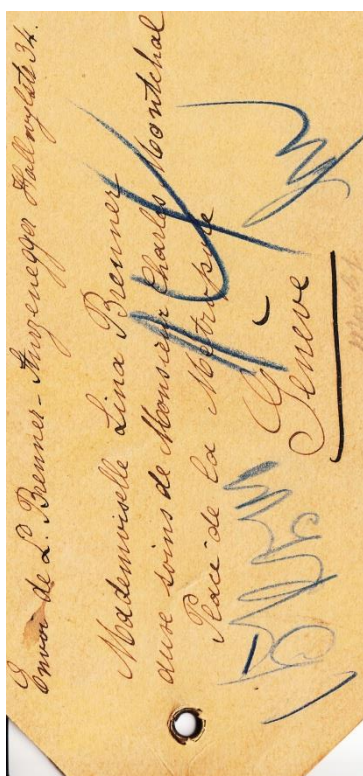 Envoi de L. Brenner - Angenegger Hallwylstr 34.
Mademoiselle Lina Brenner
aux soins de Monsieur Charles Montchal
Place de la Métropole
Genève